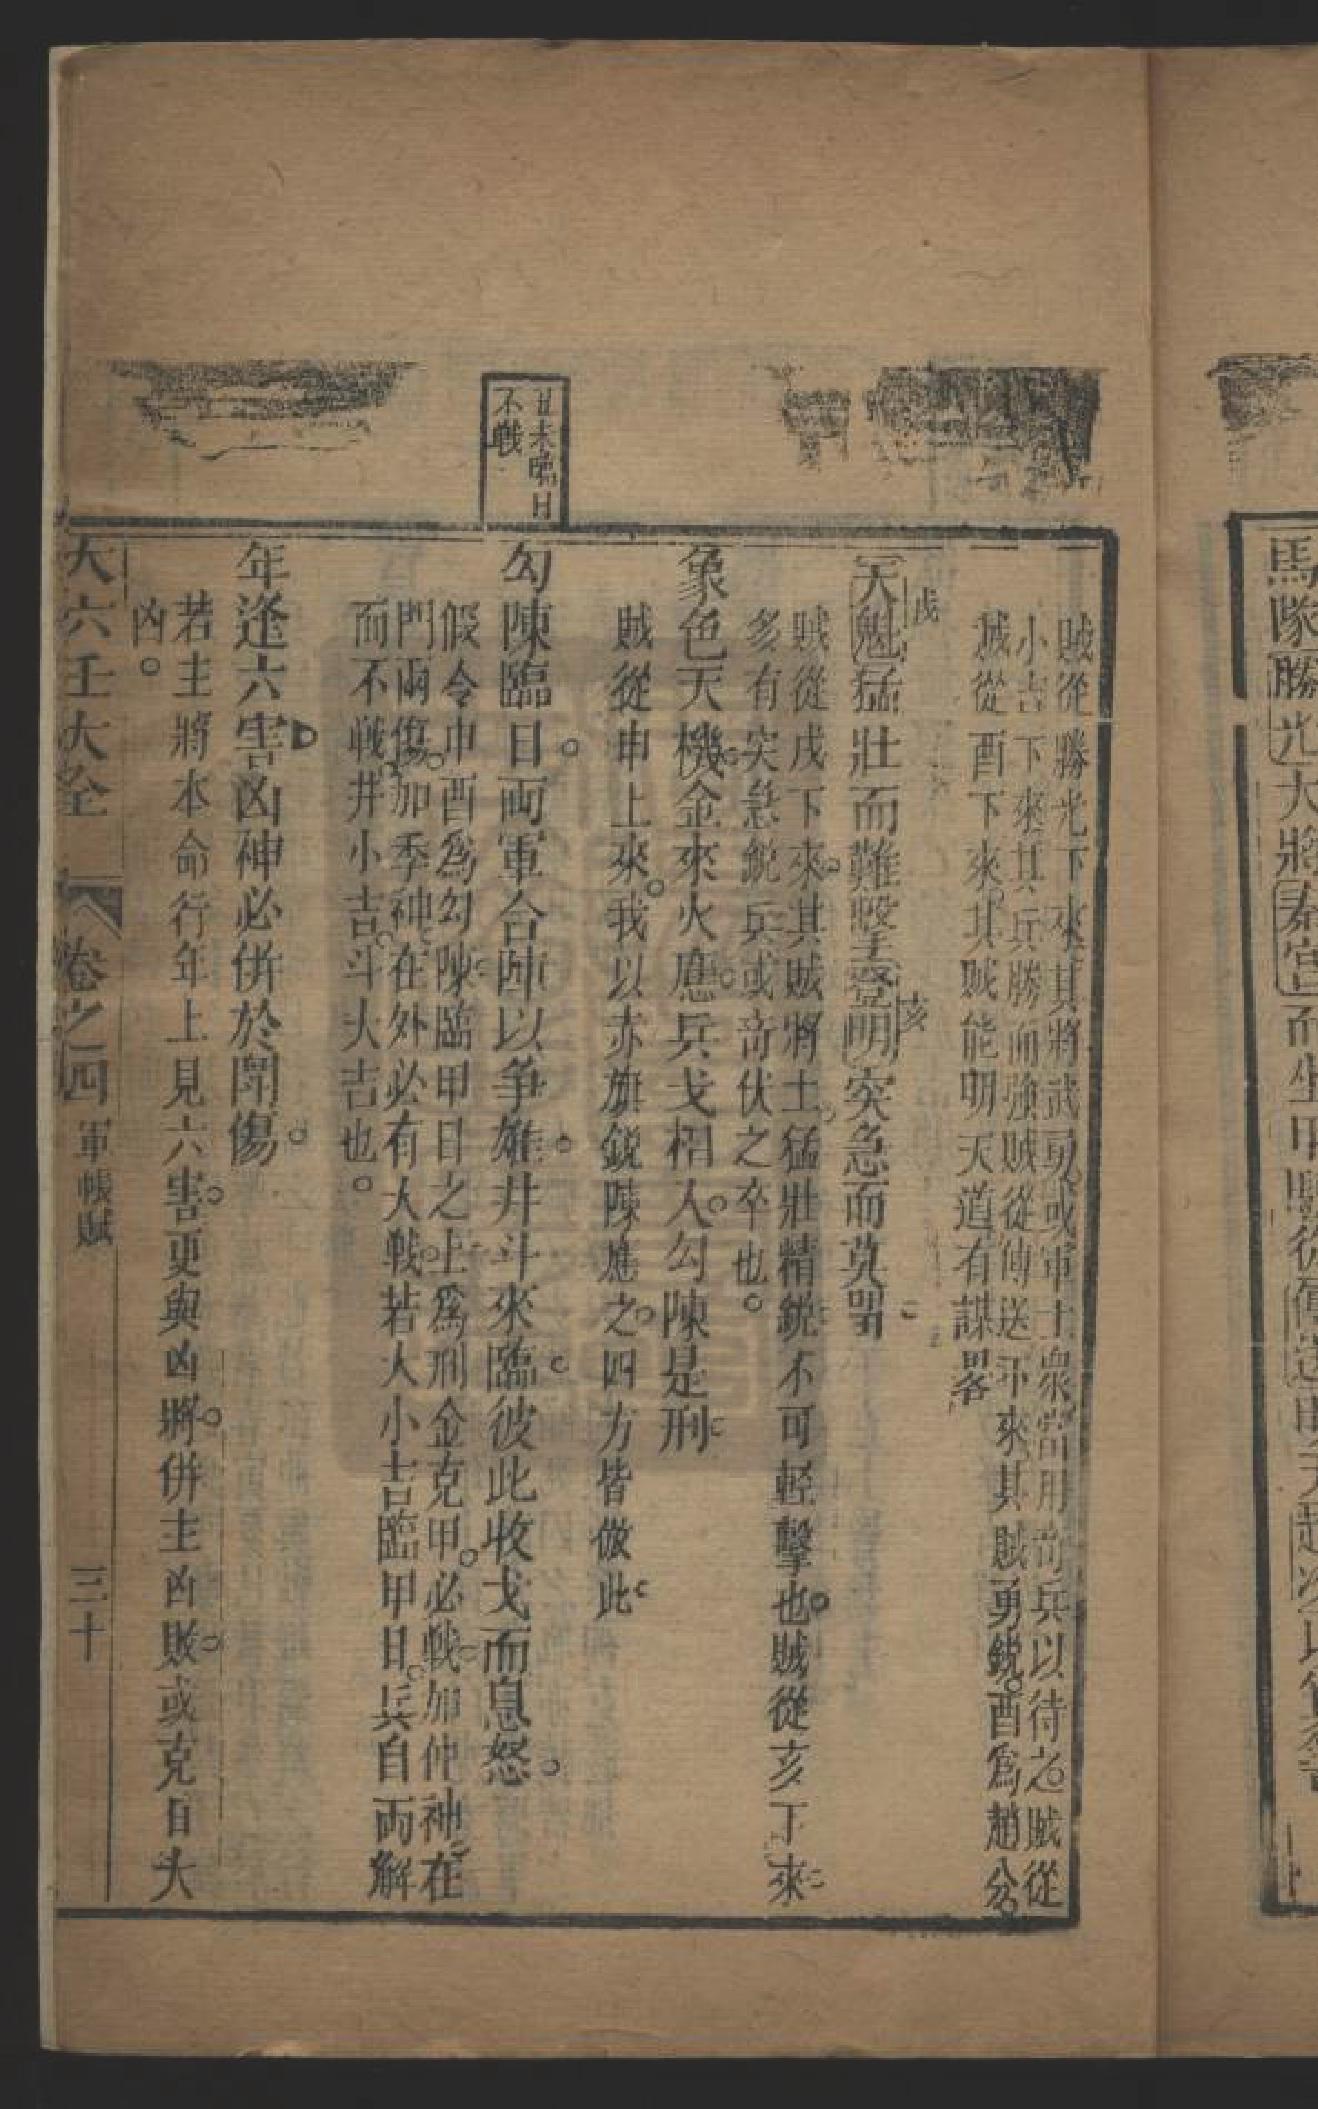 馬隊勝光大將秦宫而坐甲
丑未臨日
不戰
賊從勝光下來其將武勇或軍士衆當用尚兵以待之賊從
小吉下來其兵勝而強賊從傳送下來其賊勇鋭酉爲趙公
賊從酉下來其賊能明天道有謀畧
戌
亥
天魁猛壯而難擊登明突急而莫明
賊從戌下來其賊將士猛壯精鋭不可輕擊也賊從亥下來
多有突急鋭兵或奇伏之卒也
象色天機金來火應兵戈相人勾陳是刑
賊從申上來我以赤旗鋭陳應之四方皆倣此
勾陳臨日兩軍合陣以争雄井斗來臨彼此收戈而息怒
假令巾酉爲勾陳臨甲日之上爲刑金克甲必戰加仲神在
門兩傷加季神在外必有大戰若大小吉臨甲日兵自兩解
而不戰井小吉斗大吉也
年逢六害凶神必併於鬪傷
若主將本命行年上見六害更與凶將併主凶敗或克日大
凶
大六壬大全 卷之四 軍帳賦 三十